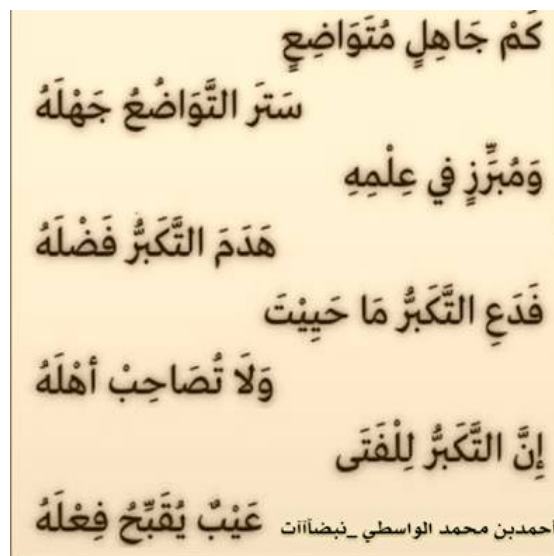 كَمْ جَاهِلٍ مُتَوَاضِعٍ
سَتَرَ التَّوَاضُعُ جَهْلَهُ
وَمُبَرِّزٍ في عِلْمِهِ
هَدَمَ التَّكَبرُّ فَضْلَهُ
فَدَعِ التَّكَبرُّ مَا حَيِيْتَ
وَلَا تُصَاحِبْ أهْلَهُ
إِنَّ التَّكَبرُّ لِلْفَتَى
عَيْبٌ يُقَبِّحُ فِعْلَهُ
أحمدبن محمد الواسطي _نبضآآآت